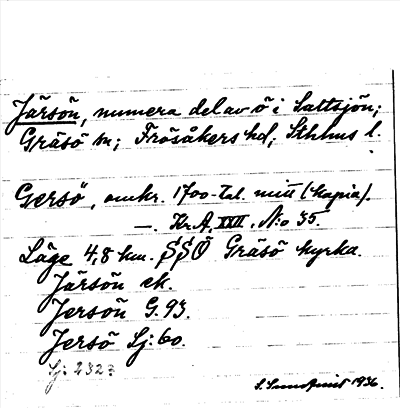 Järsön, numera del av ö i Saltsjön;
Gräsö sn; Frösåkers hd; Sthlms l.
Gersö, omkr. 1700-tal. mitt (kopia).
—. Kr.A. XXII, N:o 35.
Läge 4,8 km. SSÖ Gräsö kyrka.
Järsön ek.
Jersön G. 93.
Jersö Lj: 60.
Lj: 2327
1936.